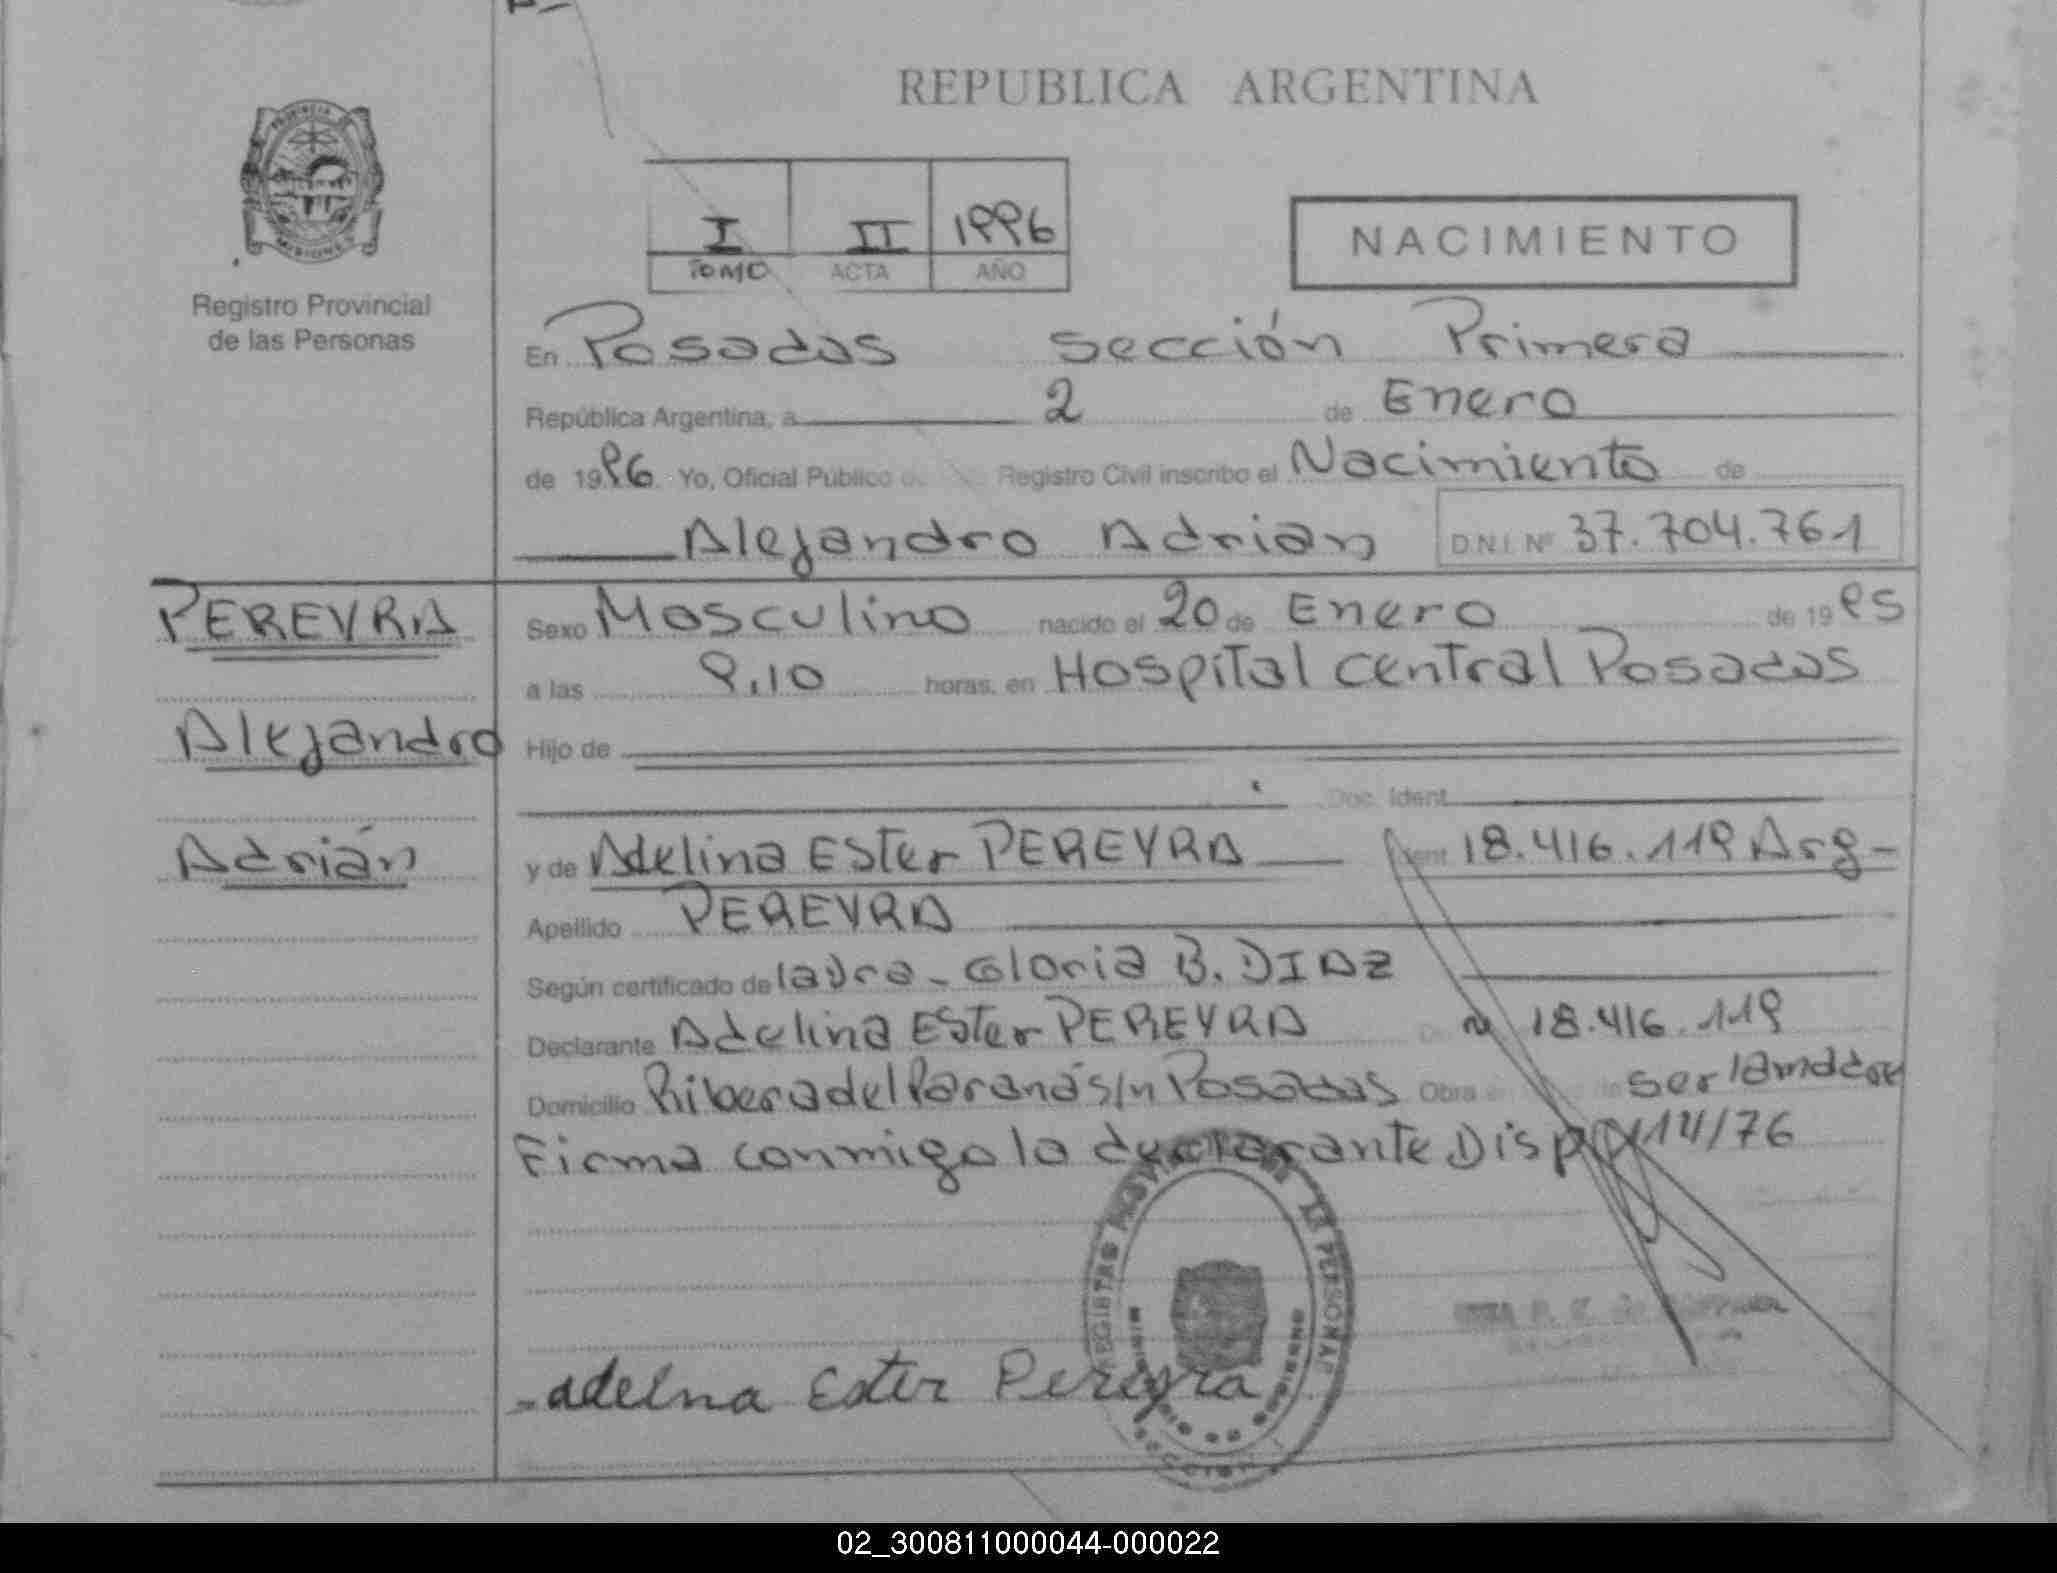 REPUBLICA ARGENTINA
PROVINCIA
MISIONES
Registro Provincial
de las Personas
I II 1996
TOMO ACTA AÑO
NACIMIENTO
En Posadas Sección Primera
República Argentina, a 2 de Enero
de 1996 Yo, Oficial Público Registro Civil inscribo el Nacimiento de
Alejandro Adrian D.N.I. Nº 37.704.761
PEREYRA
Sexo Masculino nacido el 20 de Enero de 1995
a las 9,10 horas, en Hospital Central Posadas
Alejandro
Hijo de
Doc. Ident.
Adrián
y de Adelina Ester PEREYRA Ident 18.416.119 Arg-
Apellido PEREYRA
Según certificado de Gloria B. DIAZ
Declarante Adelina Ester PEREYRA 18.416.119
Domicilio Ribera del Paraná s/n Posadas Obra ser la madre
Firma conmigo la declarante Disp 14/76
adelna Ester Pereyra
02_300811000044-000022